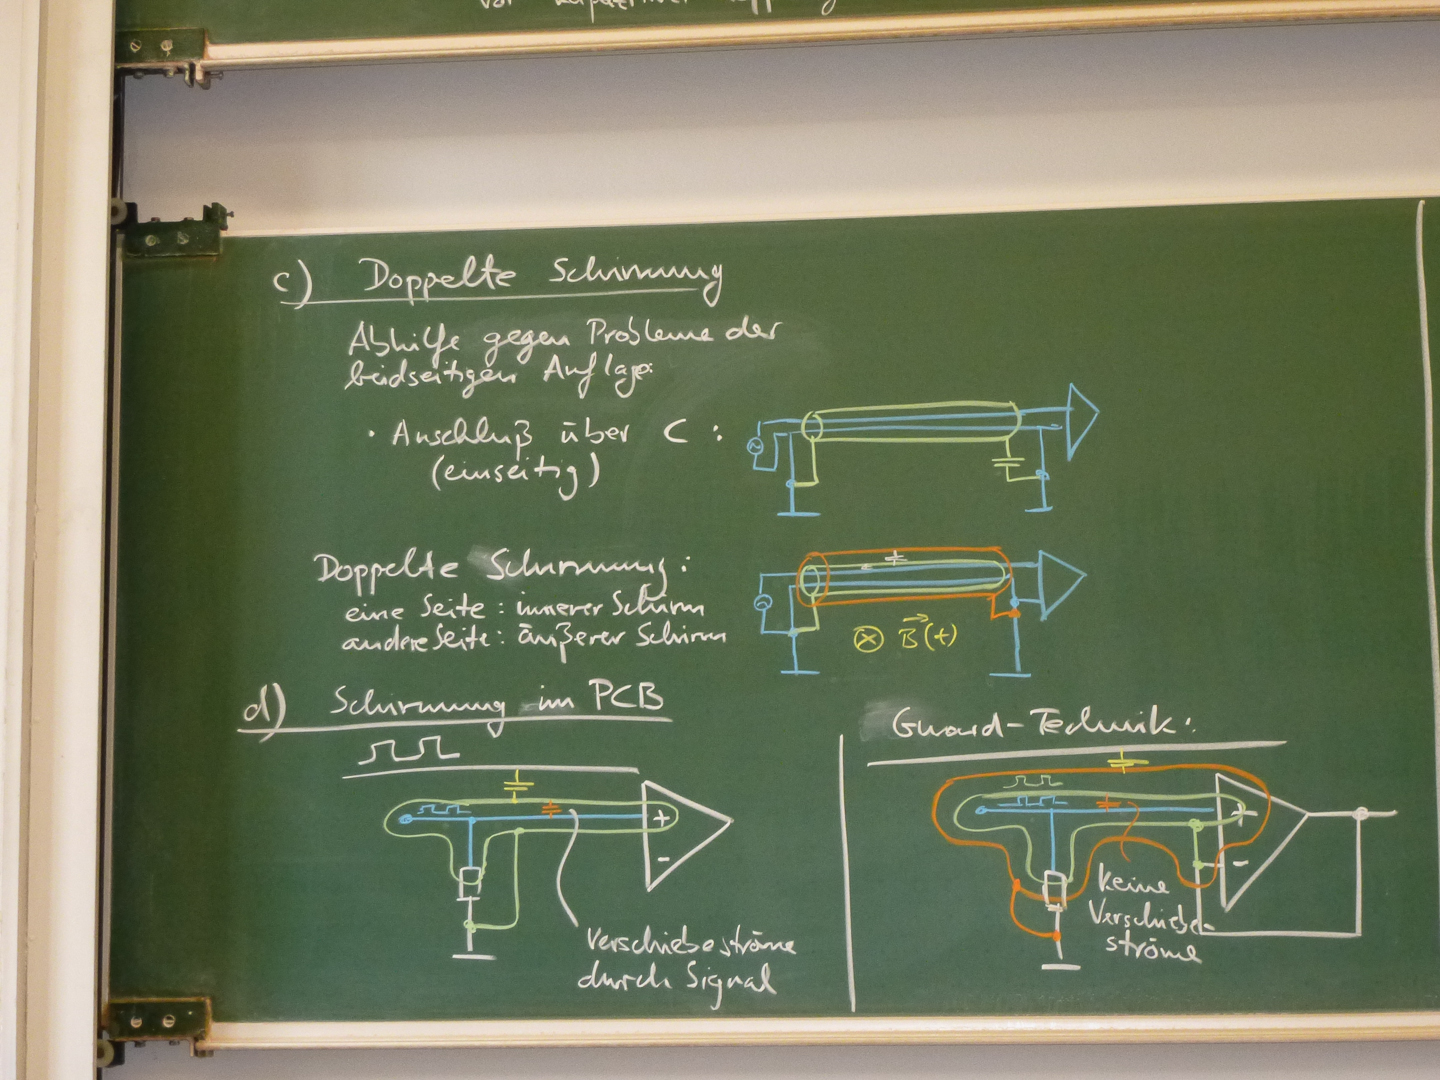 c) Doppelte Schirmung
Abhilfe gegen Probleme der
beidseitigen Auflage:
· Anschluß über C :
(einseitig)
Doppelte Schirmung :
eine Seite : innerer Schirm
andere Seite : äußerer Schirm
B(t)
d) Schirmung im PCB
+
-
Verschiebeströme
durch Signal
Guard-Technik :
+
-
keine
Verschiebe-
ströme